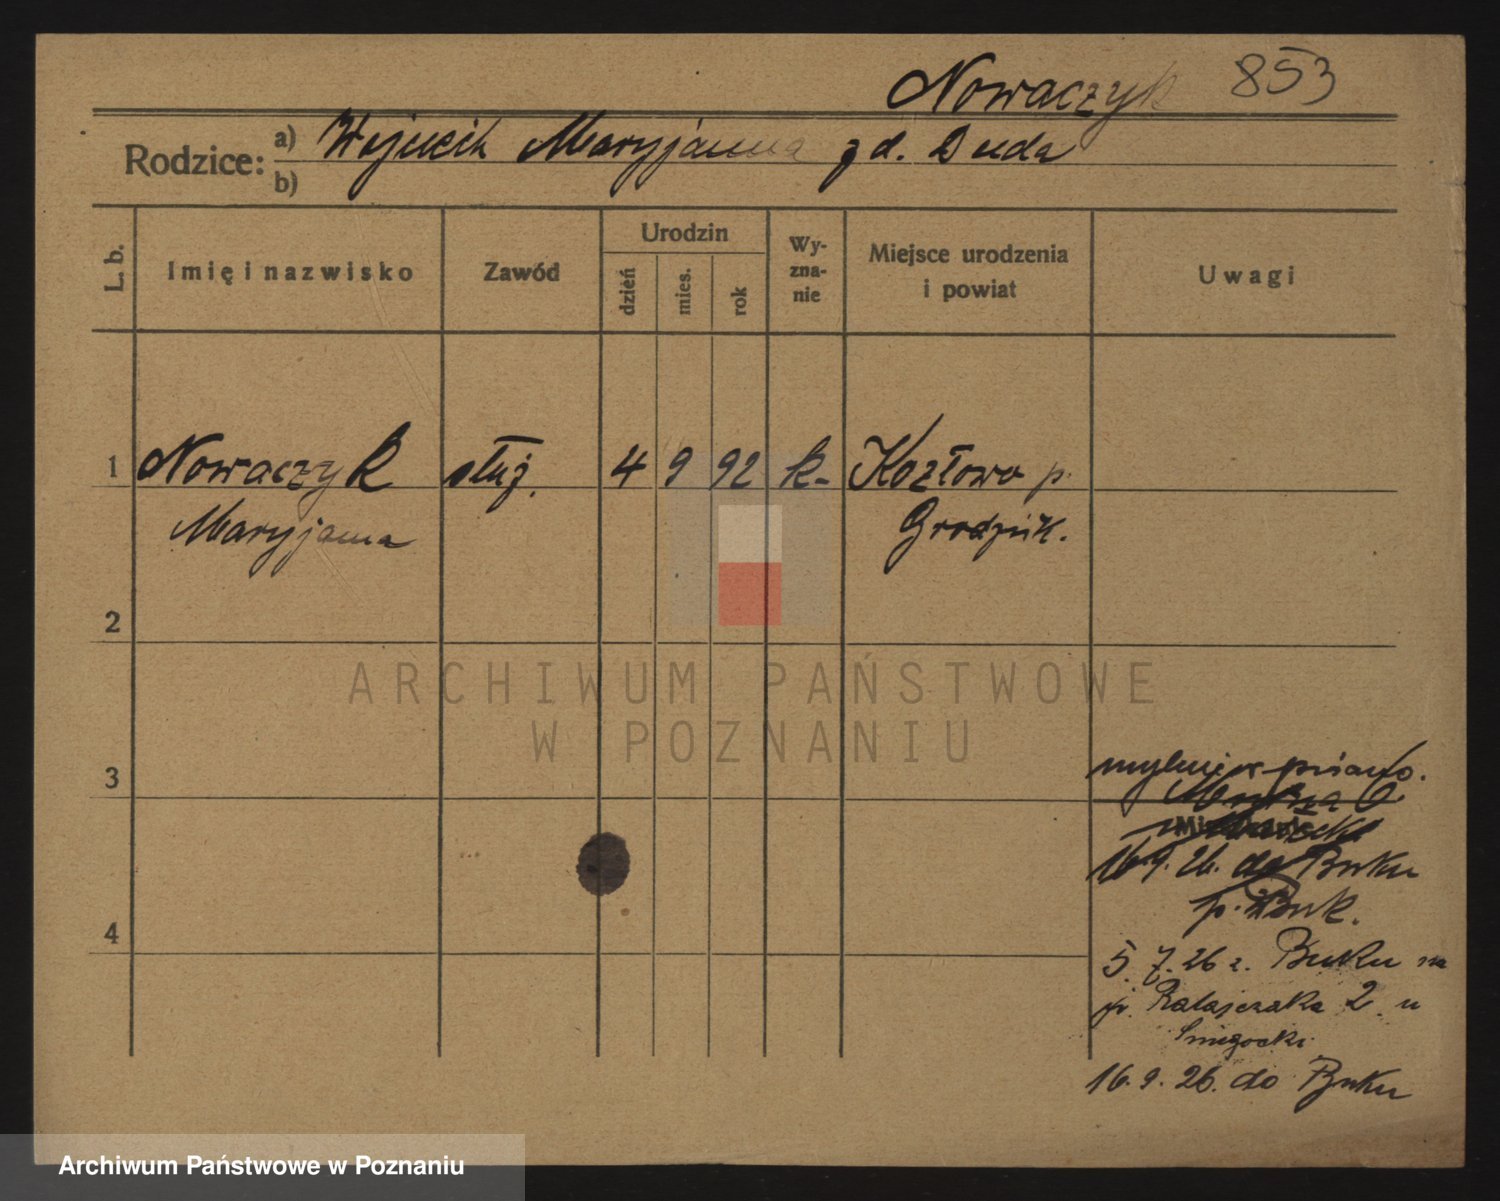 Nowaczyk 853
Rodzice: a) Wojciech Maryjanna zd. Duda
b)
L. b.
Imię i nazwisko
Zawód
Urodzin
dzień
mies.
rok
Wy-
zna-
nie
Miejsce urodzenia
i powiat
Uwagi
1 Nowaczyk służ. 4 9 92 k- Kozłowo p.
Maryjanna Grodzisk.
2
ARCHIWUM PAŃSTWOWE
W POZNANIU
3
mylnie pisano.
16.9.26. do Buku
p. Buk.
4
5.7.26 z. Buku na
p. Ratajczaka 2 u
Śniegocki
16.9.26. do Buku
Archiwum Państwowe w Poznaniu